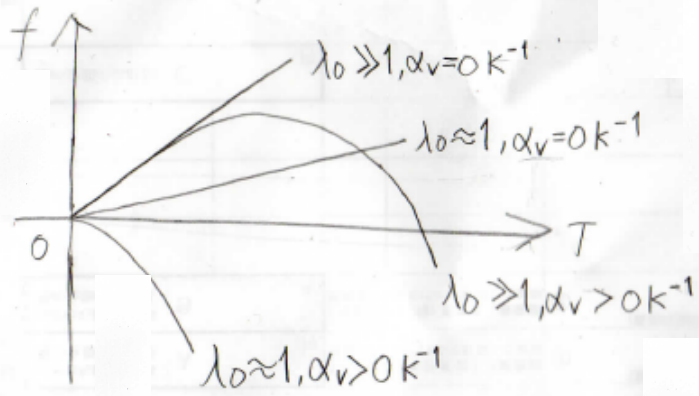 f
λ₀ ≫ 1, αᵥ = 0 K⁻¹
λ₀ ≈ 1, αᵥ = 0 K⁻¹
0
T
λ₀ ≫ 1, αᵥ > 0 K⁻¹
λ₀ ≈ 1, αᵥ > 0 K⁻¹